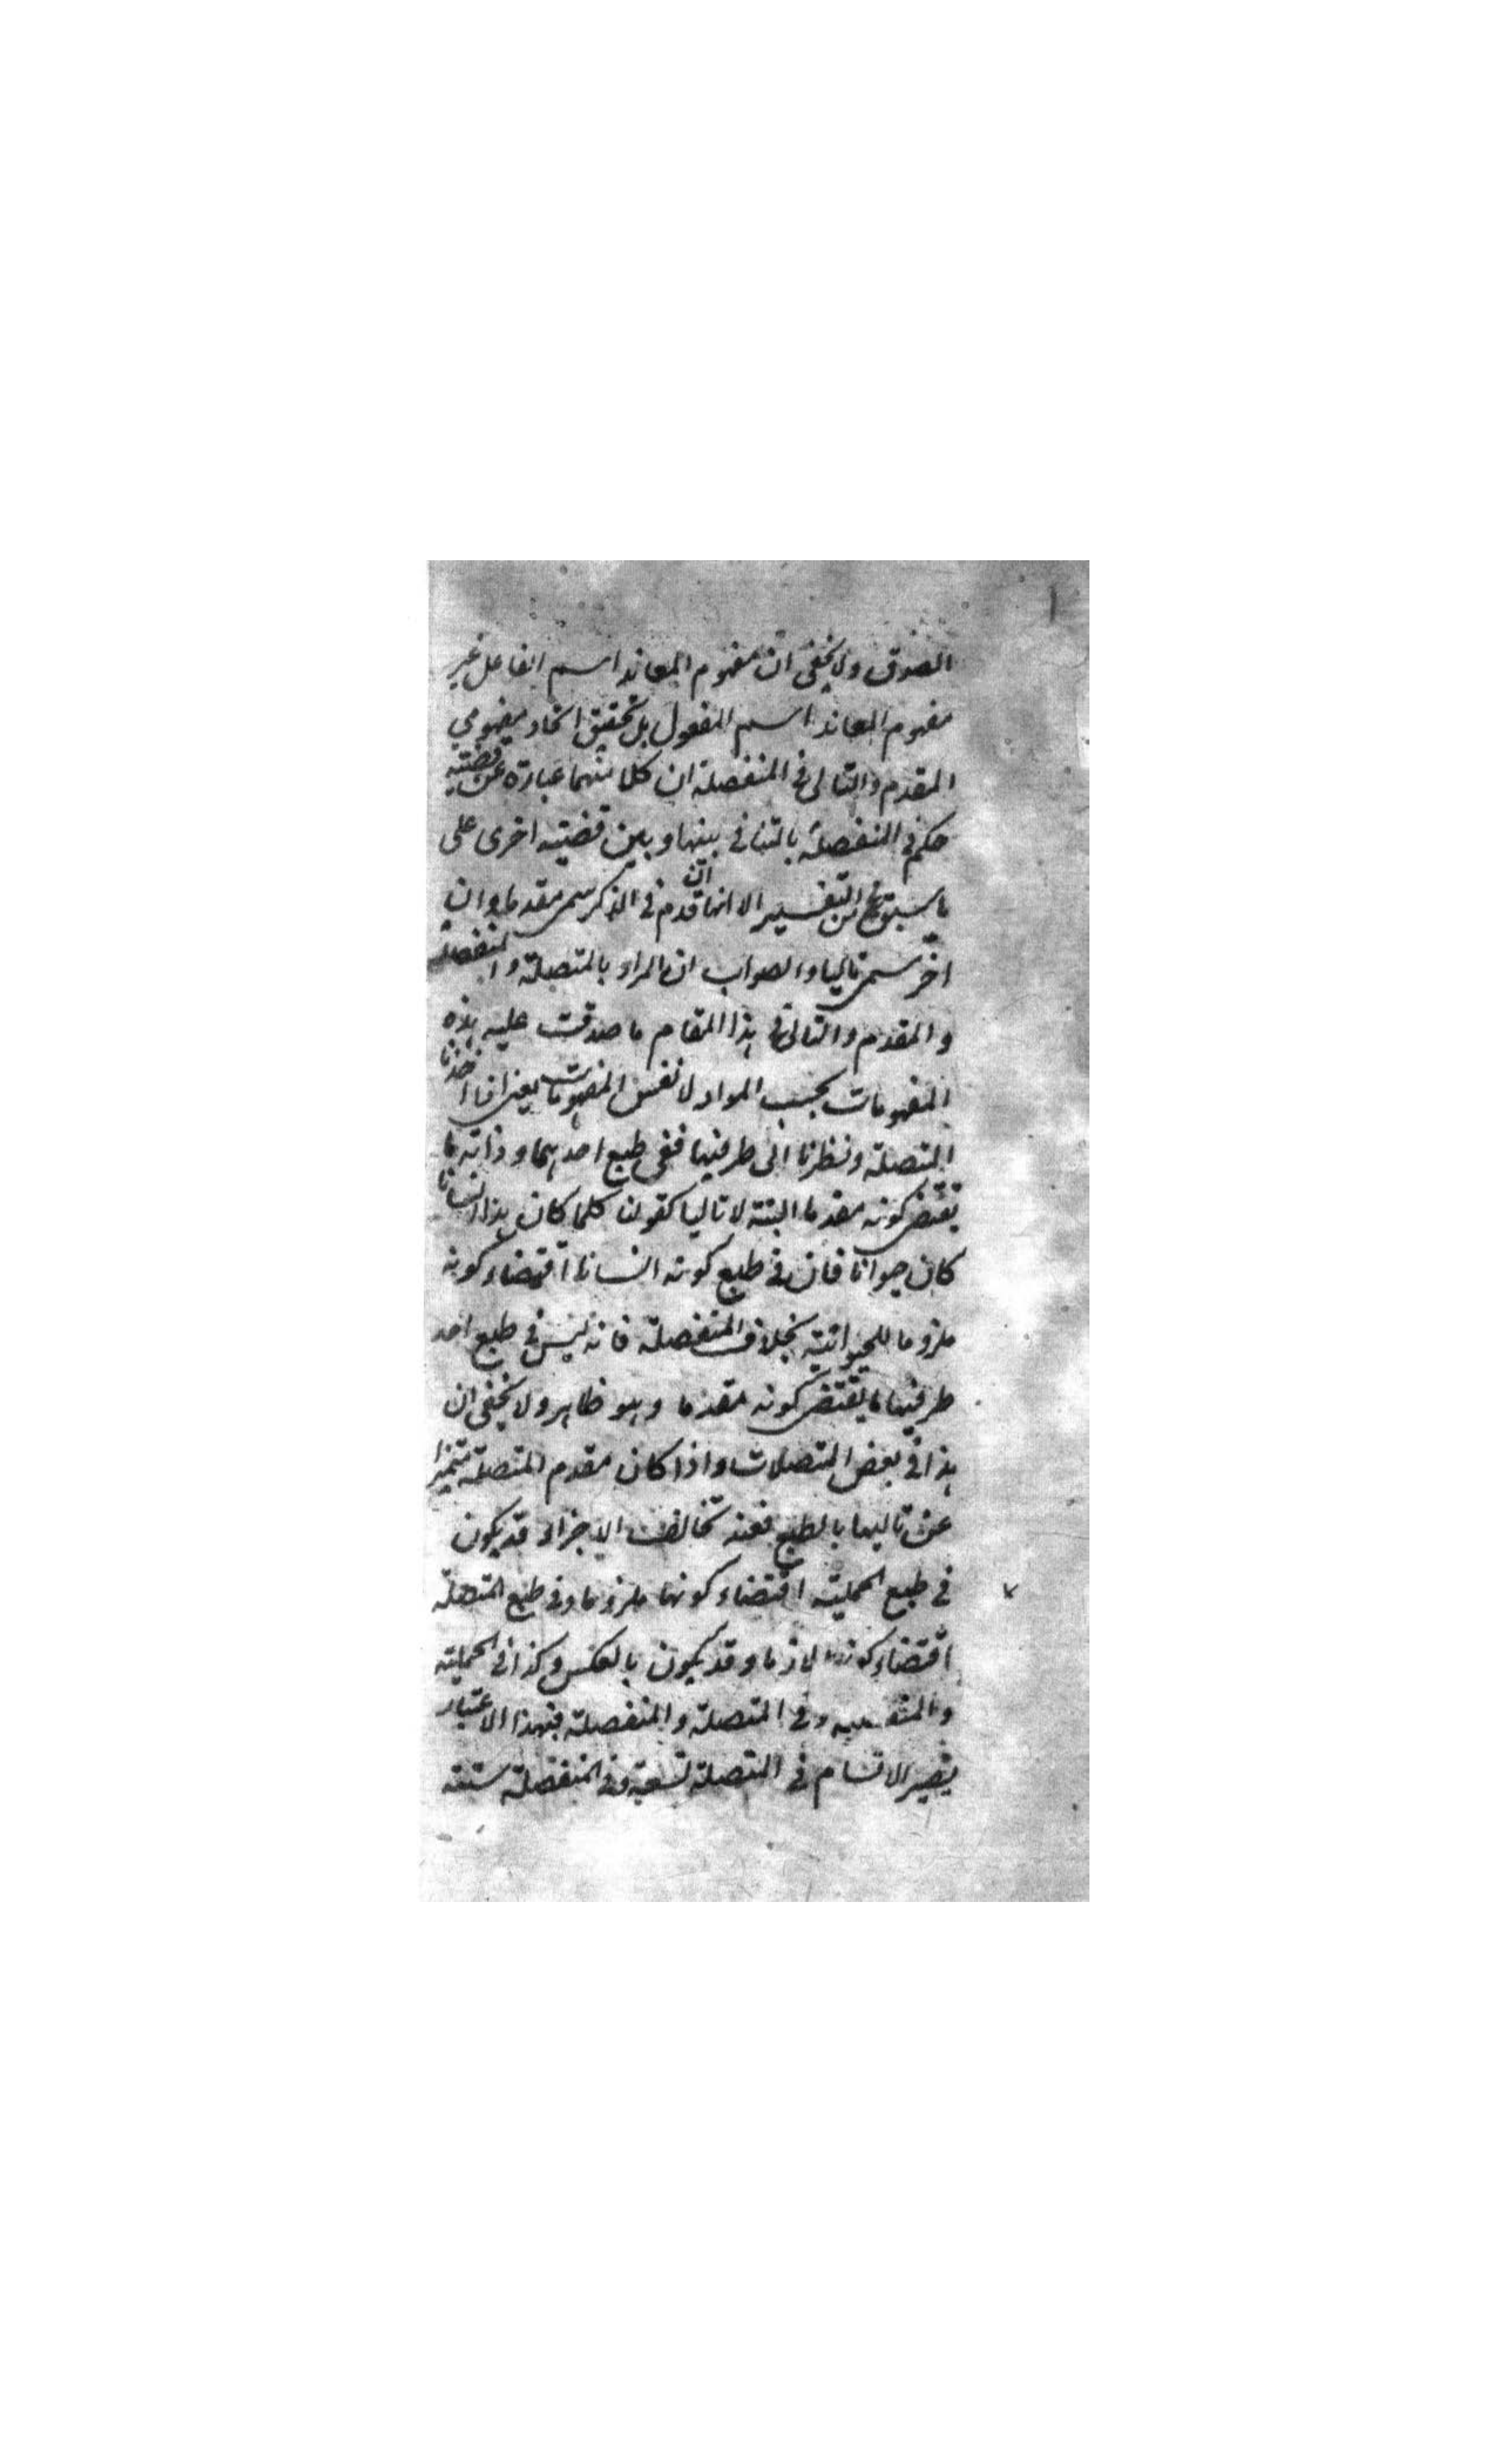 الصدق ولا يخفى ان مفهوم المعاند اسم الفاعل غير
مفهوم المعاند اسم المفعول بل تحقيق اتحاد مفهومي
المقدم والتالى فى المنفصلة ان كلا منهما عبارة عن قضية
حكم فى المنفصلة بالتنافى بينها وبين قضية اخرى على
ما سبق من التفسير الا انها ان قدم فى الذكر سمى مقدما وان
اخر سمى تاليا والصواب ان المراد بالمتصلة والمنفصلة
والمقدم والتالى فى هذا المقام ما صدقت عليه هذه
المفهومات بحسب المواد لا نفس المفهومات يعنى اذا اخذنا
المتصلة ونظرنا الى طرفيها ففى طبع احدهما وذاته ما
يقتضى كونه مقدما البتة لا تاليا كقولنا كلما كان هذا انسانا
كان حيوانا فان فى طبع كونه انسانا اقتضاء كونه
ملزوما للحيوانية بخلاف المنفصلة فانه ليس فى طبع احد
طرفيها ما يقتضى كونه مقدما وهو ظاهر ولا يخفى ان
هذا فى بعض المتصلات واذا كان مقدم المتصلة متميزا
عن تاليها بالطبع فعند تخالف الاجزاء قد يكون
فى طبع الحملية اقتضاء كونها ملزوما وفى طبع المتصلة
اقتضاء كونها لازما وقد يكون بالعكس وكذا فى الحملية
والمنفصلة وفى المتصلة والمنفصلة فبهذا الاعتبار
يصير الاقسام فى المتصلة تسعة وفى المنفصلة ستة